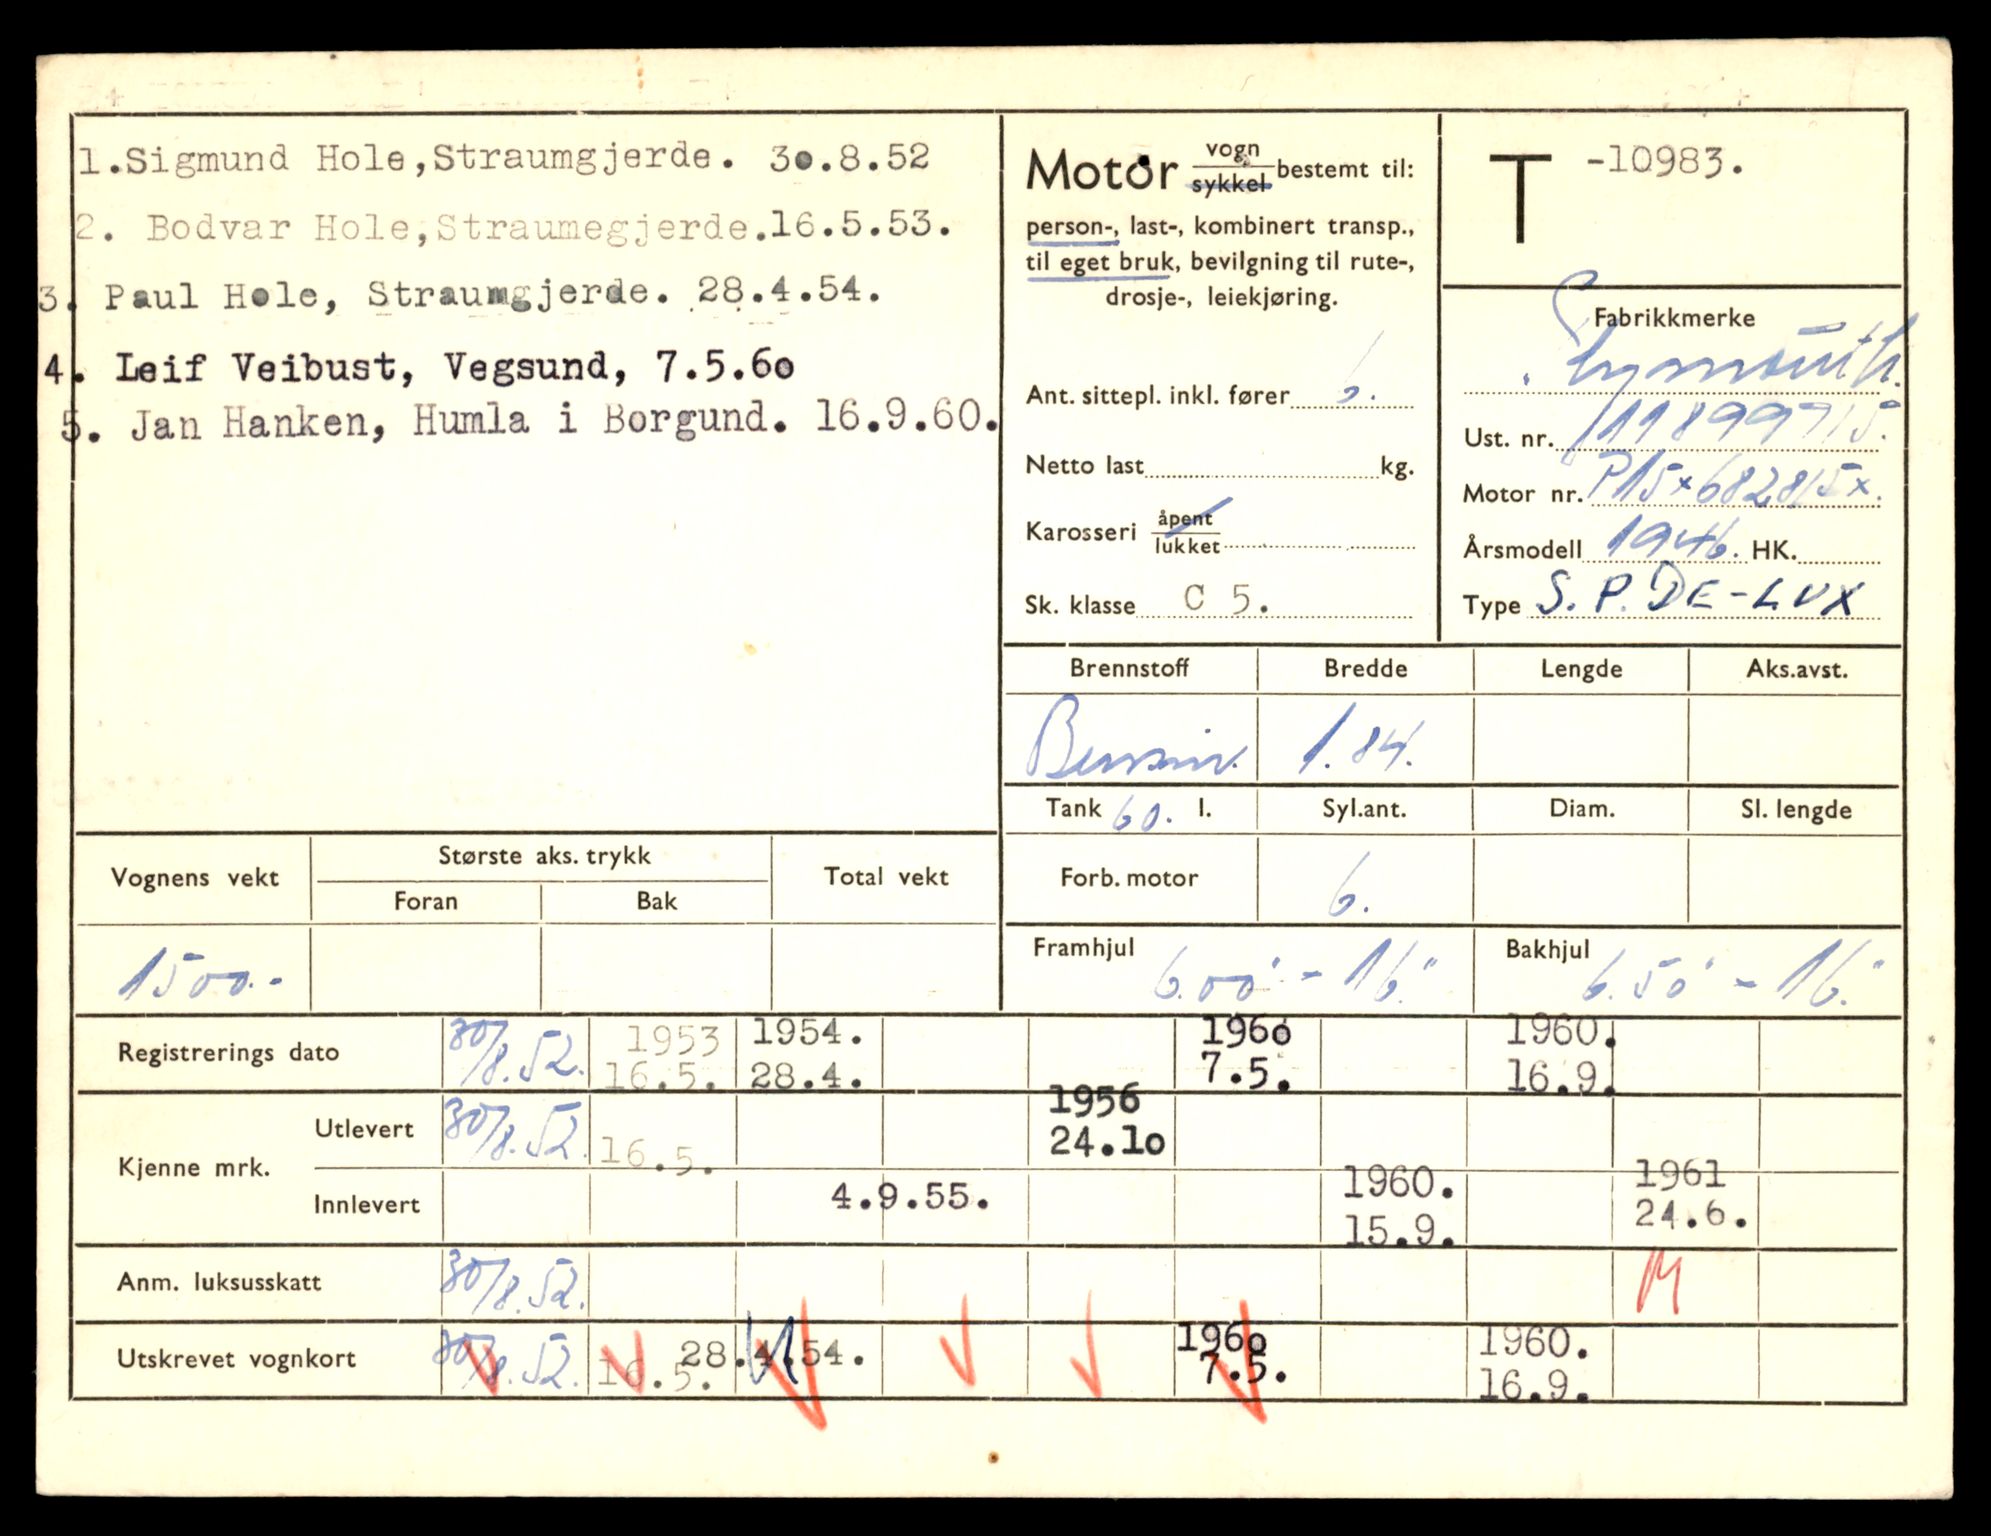 1.Sigmund Hole,Straumgjerde. 3o.8.52
2. Bodvar Hole,Straumegjerde.16.5.53.
3. Paul Hole, Straumgjerde. 28.4.54.
4. Leif Veibust, Vegsund, 7.5.6o
5. Jan Hanken, Humla i Borgund. 16.9.60.
Motor vogn bestemt til:
sykkel
person-, last-, kombinert transp.,
til eget bruk, bevilgning til rute-,
drosje-, leiekjøring.
Ant. sittepl. inkl. fører 6.
Netto last kg.
Karosseri åpent
lukket
Sk. klasse C 5.
T -10983.
Fabrikkmerke
Plymouth.
Ust. nr. 11899715.
Motor nr. P15x682815x.
Årsmodell 1946. HK.
Type S. P. DE-LUX
Brennstoff Bredde Lengde Aks.avst.
Bensin. 1.84.
Tank 60. l. Syl.ant. Diam. Sl. lengde
Forb. motor 6.
Framhjul 6.00" - 16" Bakhjul 6.50" - 16"
Vognens vekt Største aks. trykk Total vekt
Foran Bak
1500.-
Registrerings dato 30/8.52. 1953 1954. 196o 1960.
16.5. 28.4. 7.5. 16.9.
Kjenne mrk. Utlevert 30/8.52. 16.5. 1956
24.1o
Innlevert 4.9.55. 1960. 1961
15.9. 24.6.
Anm. luksusskatt 30/8.52. M
Utskrevet vognkort 30/8.52. 16.5. 28.4.54. 196o 1960.
7.5. 16.9.